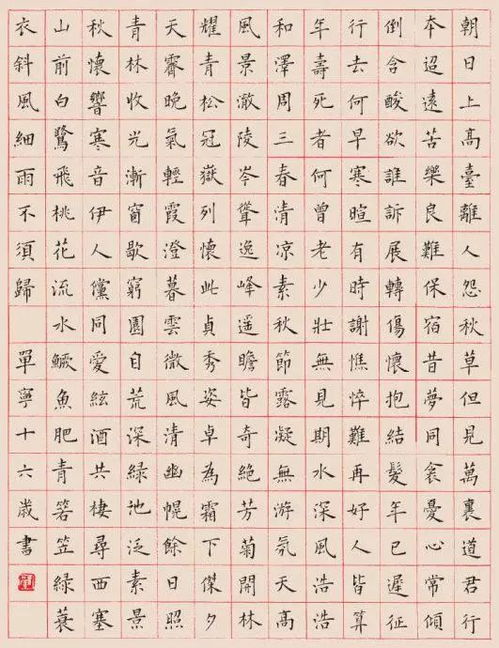 朝日上高臺離人怨秋草但見萬裏道君行
本迢遠苦樂良難保宿昔夢同衾憂心常傾
倒含酸欲誰訴展轉傷懷抱結髮年已遲征
行去何早寒暄有時謝憔悴難再好人皆算
年壽死者何曾老少壯無見期水深風浩浩
和澤周三春清涼素秋節露凝無游氛天高
風景澈陵岑聳逸峰遥瞻皆奇絕芳菊開林
耀青松冠嶽列懷此貞秀姿卓為霜下傑夕
天霽晚氣輕霞澄暮雲微風清幽幌餘日照
青林收光漸窗歇窮園自荒深綠池泛素景
秋懷響寒音伊人儻同愛絃酒共棲尋西塞
山前白鷺飛桃花流水鱖魚肥青箬笠綠蓑
衣斜風細雨不須歸 單寧十六歲書